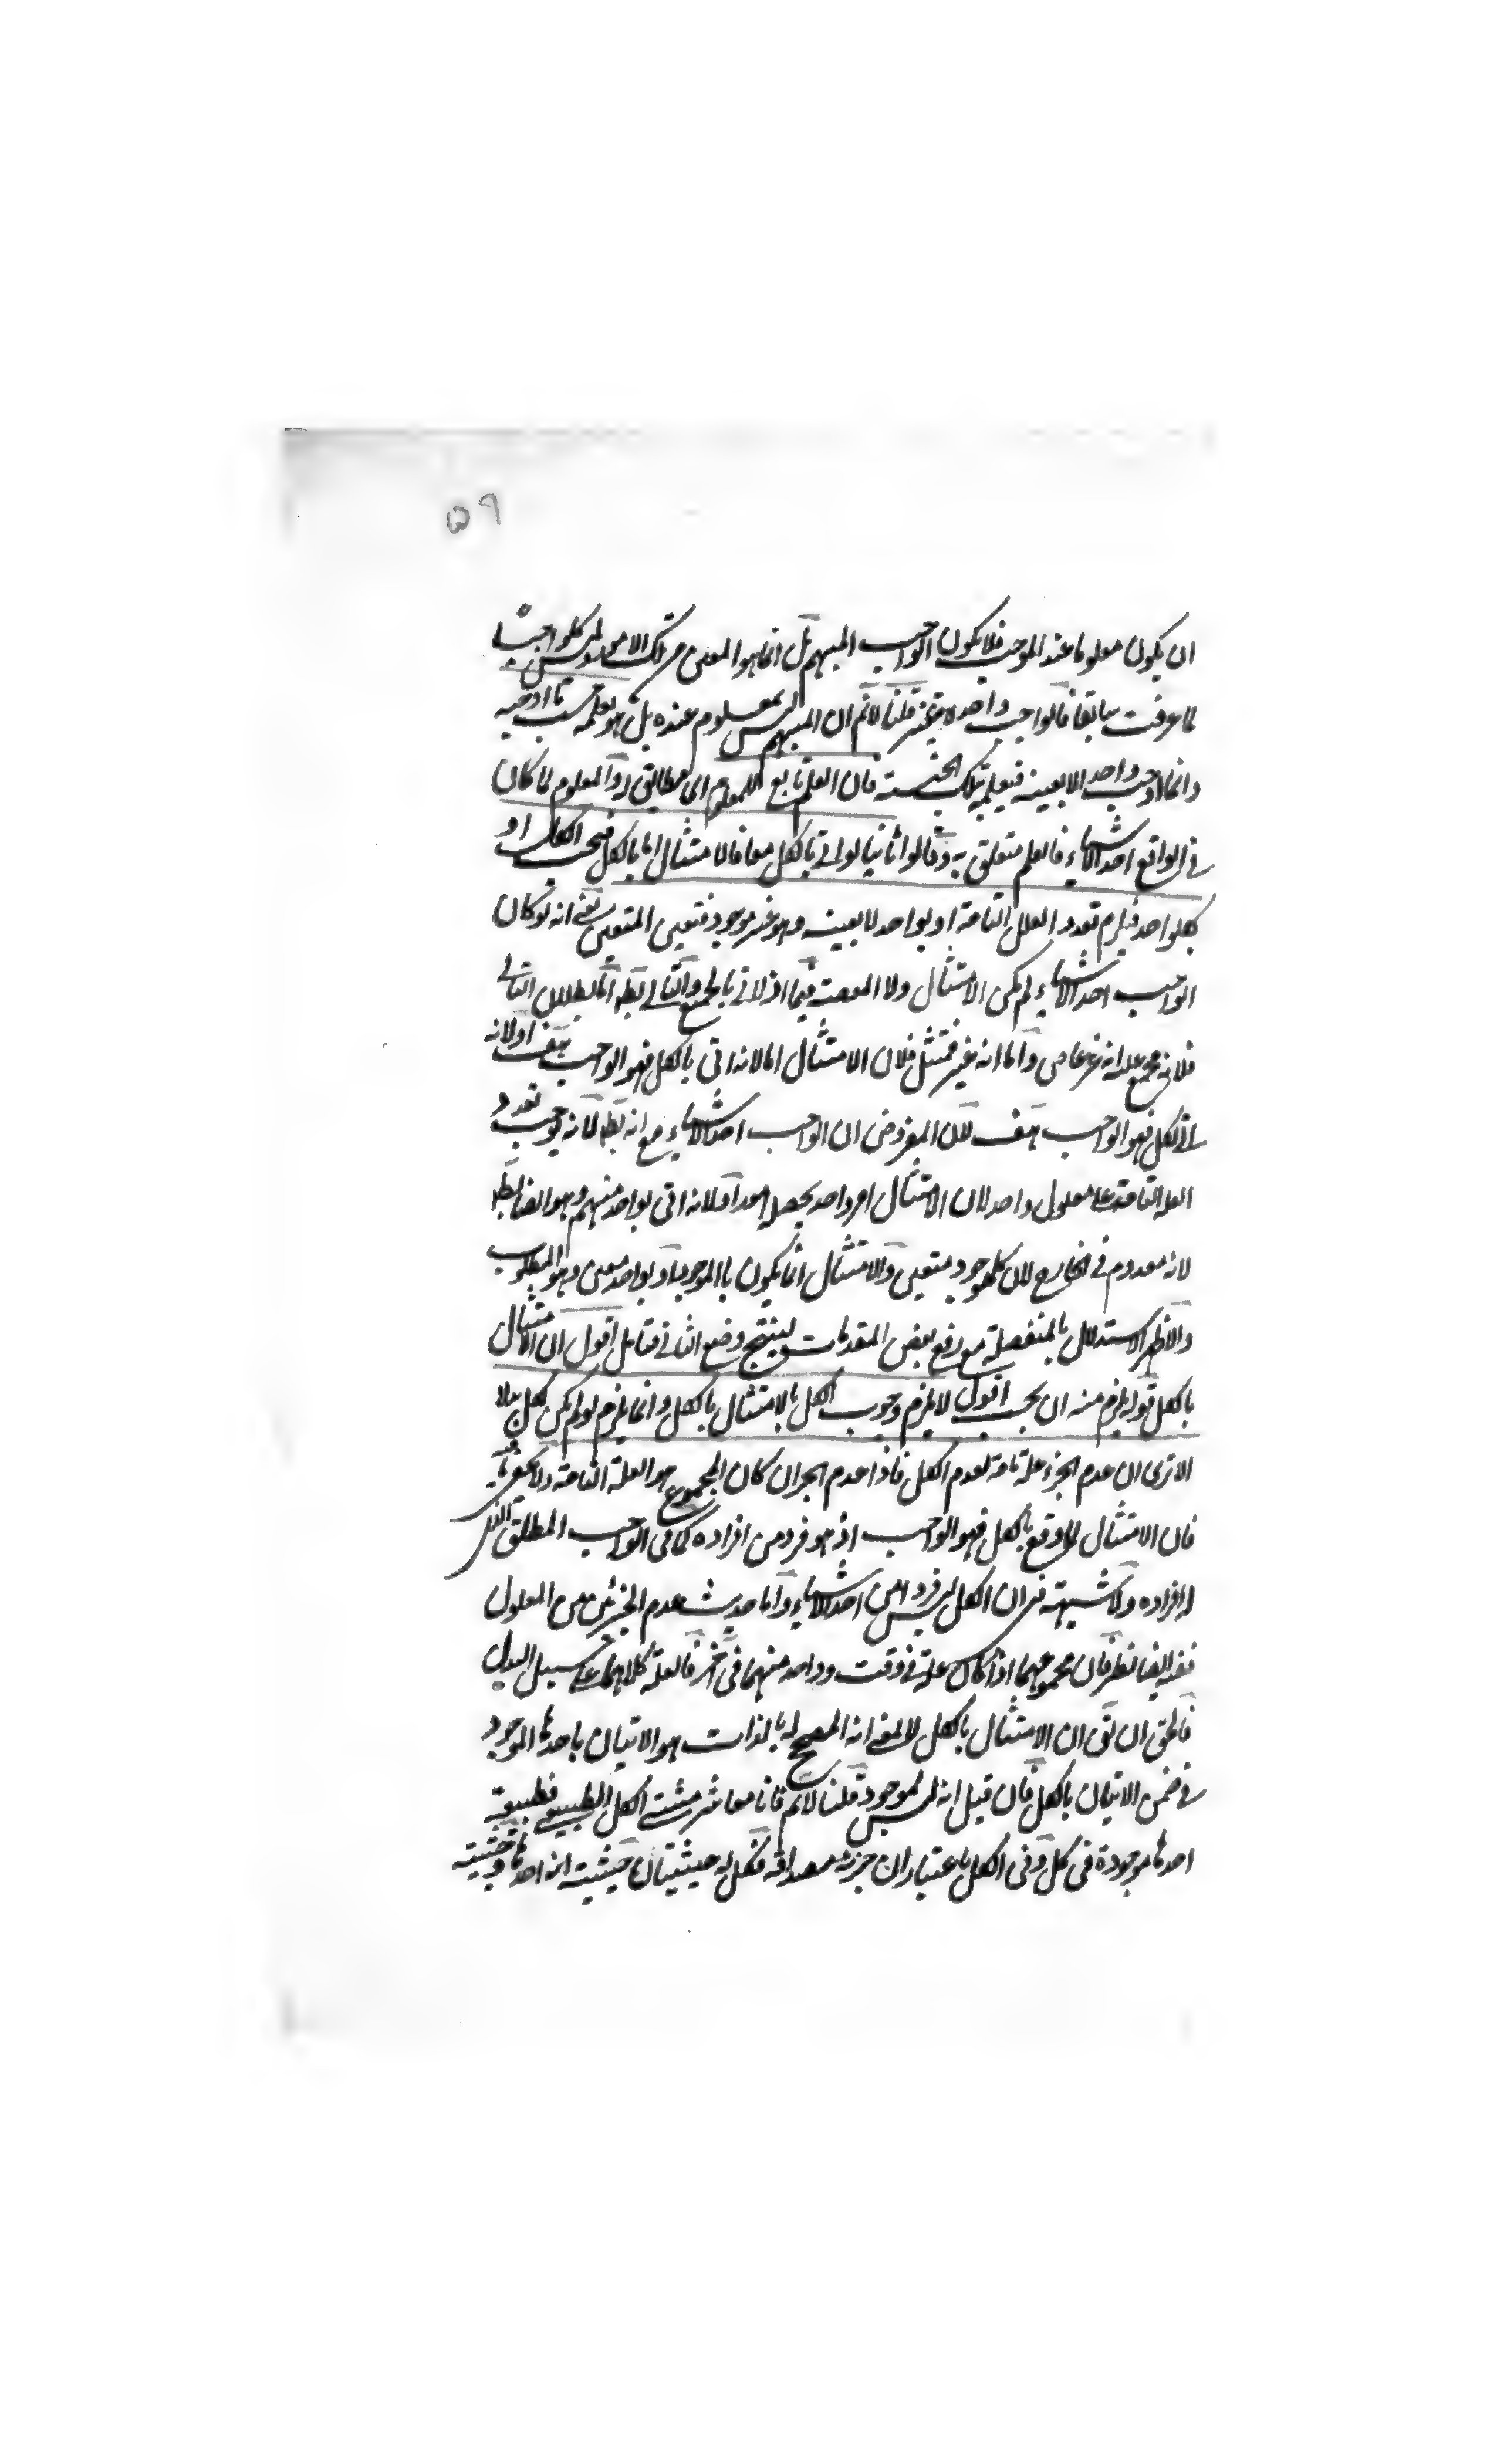 ٥٩
ان يكون معلوما عند الموجب فلا يكون الواجب المبهم بل انما هو المعين من تلك الامور وليس كلواحد
لما عرفت سابقا فالواجب واحد لا بعينه قلنا لانم ان المبهم ليس بمعلوم عنده بل هو يعلمه حسب ما اوجبه
وانما اوجب واحد الا بعينه فيعلمه بتلك الحيثية فان العلم تابع للمعلوم اى مطابق له والمعلوم لما كان
فى الواقع احد الاشياء فالعلم متعلق به وقالوا ثانيا لو اتى بالكل معا فالامتثال اما بالكل فيجب الكل او
بكلواحد فيلزم تعدد العلل التامة او بواحد لا بعينه وهو غير موجود فتعين المتعين يعنى انه لو كان
الواجب احد الاشياء لم يكن الامتثال ولا المعصية فيما اذ لاتى بالجميع والتالى بط اما بطلان التالى
فلانه مجمع على انه غير عاص واما انه غير ممتثل فلان الامتثال اما لانه اتى بالكل فهو الواجب هف اولانه
اتى لكل فهو الواجب هف لان المفروض ان الواجب احد الاشياء مع انه بط لما نه يوجب تعدد
العلة التامة على معلول واحد لان الامتثال امر واحد يحصل اولانه اتى بواحد منهم وهو ايضا بط
لانه معدوم فى الخارج لان كلموجود متعين والامتثال انما يكون باالموجود او بواحد معين وهو المطلوب
والاظهر الاستدلال بالمنفصلة مع رفع بعض المقدمات لينتج وضع الثانى فتامل اقول ان الامتثال
بالكل قوله يلزم منه ان يجب اقول لا يلزم وجوب الكل بالامتثال بالكل وانما يلزم لو لم يكن كل بدلا
الا ترى ان عدم الجزء علة تامة لعدم الكل فاذا عدم الجزان كان المجموع هو العلة التامة ولا يخفى
فان الامتثال لو وقع بالكل فهو الواجب اذ هو فرد من افراده كما فى الواجب المطلق
افراده ولا شبهة فى ان الكل ليس فردا من احد الاشياء واما حديث عدم الجزئين من المعلول
ففيه ايضا نظر فان مجموعهما اذا كان علة فى وقت وواحد منهما فى آخر فالعلة كلاهما على سبيل البدل
فالحق ان يق ان الامتثال بالكل لا لمعنى انه المصحح له بالذات هو الاتيان باحدها الموجود
فى ضمن الاتيان بالكل فان قيل انه ليس بموجود قلنا لانم فانا معاشر مثبتى الكل الطبيعى فطبيعة
احدها موجودة فى كل وفى الكل باعتبار ان جزءه مصداقه فكل له حيثيتان حيثية انه احدها وحيثية